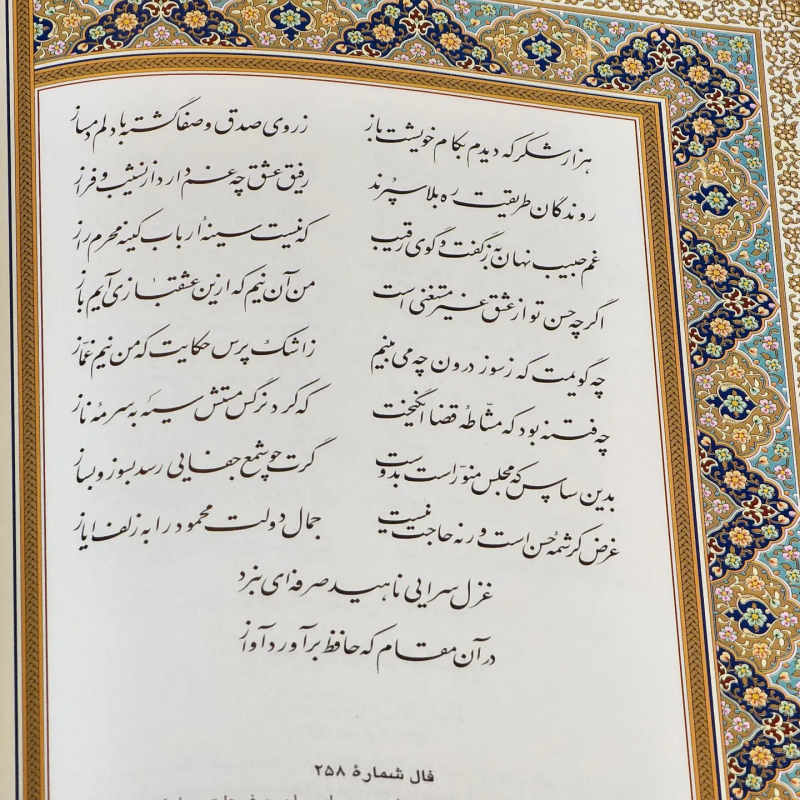 هزار شکر که دیدم بکام خویشت باز ز روی صدق و صفا گشته با دلم دمساز
روندگان طریقت ره بلا سپرند رفیق عشق چه غم دارد از نشیب و فراز
غم حبیب نهان به ز گفت و گوی رقیب که نیست سینهٔ ارباب کینه محرم راز
اگر چه حسن تو از عشق غیر مستغنی است من آن نیم که ازین عشقبازی آیم باز
چه گویمت که ز سوز درون چه می بینم ز اشک پرس حکایت که من نیم غماز
چه فتنه بود که مشاطهٔ قضا انگیخت که کرد نرگس مستش سیه به سرمهٔ ناز
بدین سپاس که مجلس منور است بدوست گرت چو شمع جفایی رسد بسوز و بساز
غرض کرشمهٔ حسن است ور نه حاجت نیست جمال دولت محمود را به زلف ایاز
غزل سرایی ناهید صرفه ای نبرد
در آن مقام که حافظ برآورد آواز
فال شمارهٔ ۲۵۸